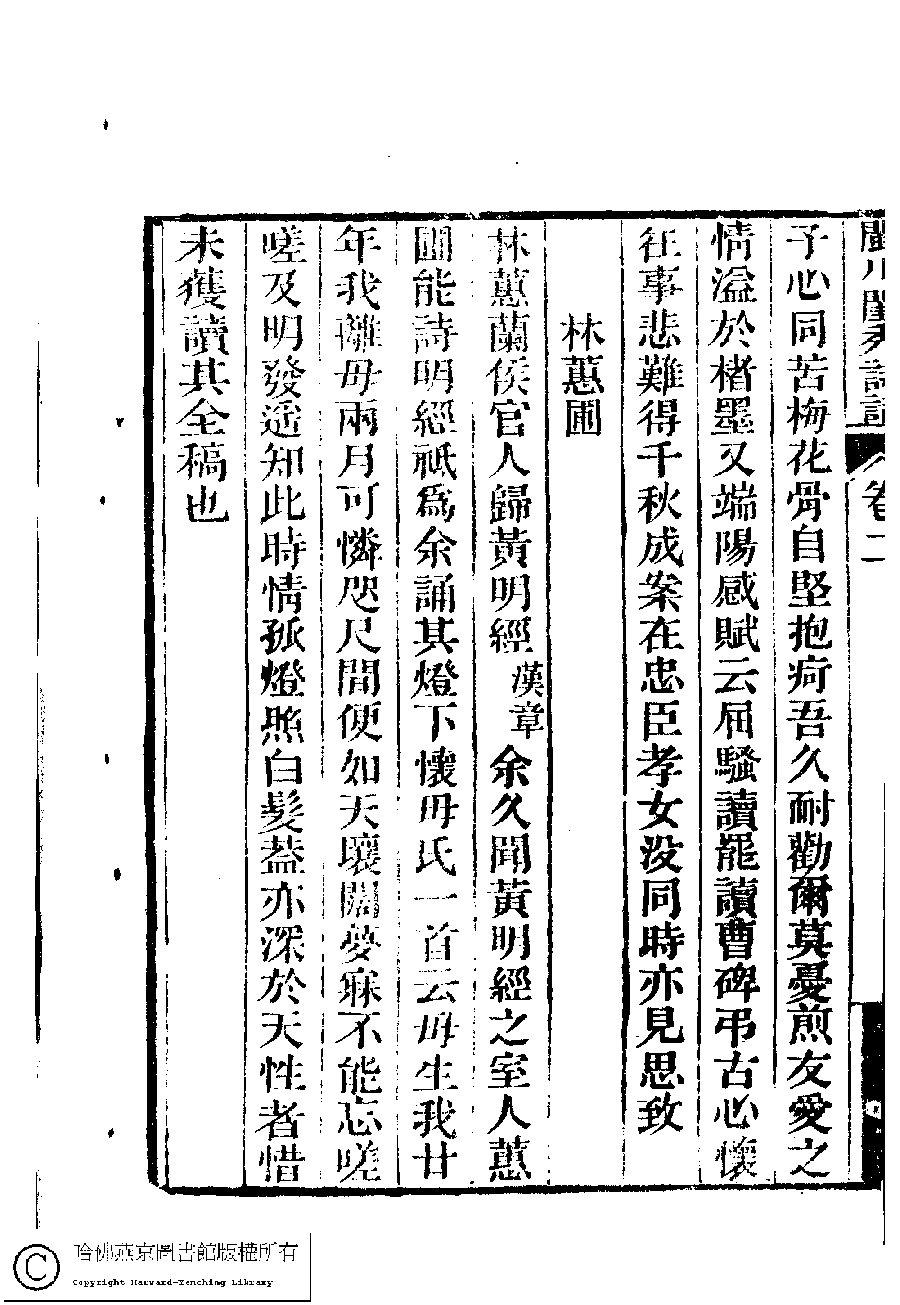 閩川閨秀詩話 卷二
子心同苦梅花骨自堅抱疴吾久耐勸爾莫憂煎友愛之
情溢於楮墨又端陽感賦云屈騷讀罷讀曹碑弔古心懷
往事悲難得千秋成案在忠臣孝女没同時亦見思致
林蕙圃
林蕙蘭侯官人歸黃明經漢章余久聞黃明經之室人蕙
圃能詩明經祇爲余誦其燈下懷母氏一首云母生我廿
年我離母兩月可憐咫尺間便如天壤闊夢寐不能忘嗟
嗟及明發遥知此時情孤燈照白髮葢亦深於天性者惜
未獲讀其全稿也
哈佛燕京圖書館版權所有
Copyright Harvard-Yenching Library